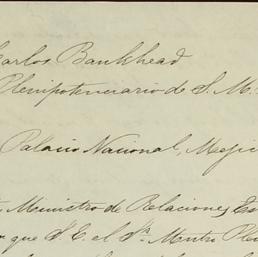 Carlos Bankhead
Plenipotenciario de S. M.
Palacio Nacional, Meji
Ministro de Relaciones Es
que S. E. el Sr. Mntro Ple